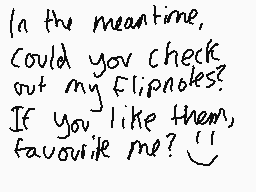 In the meantime,
Could you check
out my Flipnotes?
If you like them,
favourite me? :)